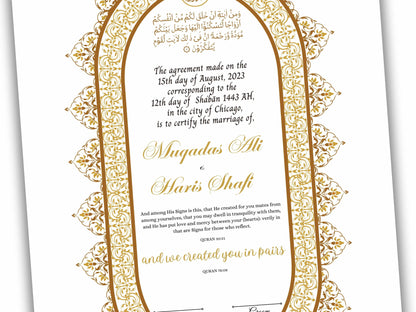 وَمِنْ آيَتِهِ أَنْ خَلَقَ لَكُم مِّنْ أَنْفُسِكُمْ
أَزْوَاجًا لِّتَسْكُنُوا إِلَيْهَا وَجَعَلَ بَيْنَكُم
مَّوَدَّةً وَرَحْمَةً إِنَّ فِي ذَلِكَ لَآيَتٍ لِّقَوْمٍ
يَتَفَكَّرُونَ
The agreement made on the
15th day of August, 2023
corresponding to the
12th day of Shaban 1443 AH,
in the city of Chicago,
is to certify the marriage of.
Muqadas Ali
&
Haris Shafi
And among His Signs is this, that He created for you mates from
among yourselves, that you may dwell in tranquility with them,
and He has put love and mercy between your (hearts): verily in
that are Signs for those who reflect.
QURAN 30:21
and we created you in pairs
QURAN 78:08
Groom